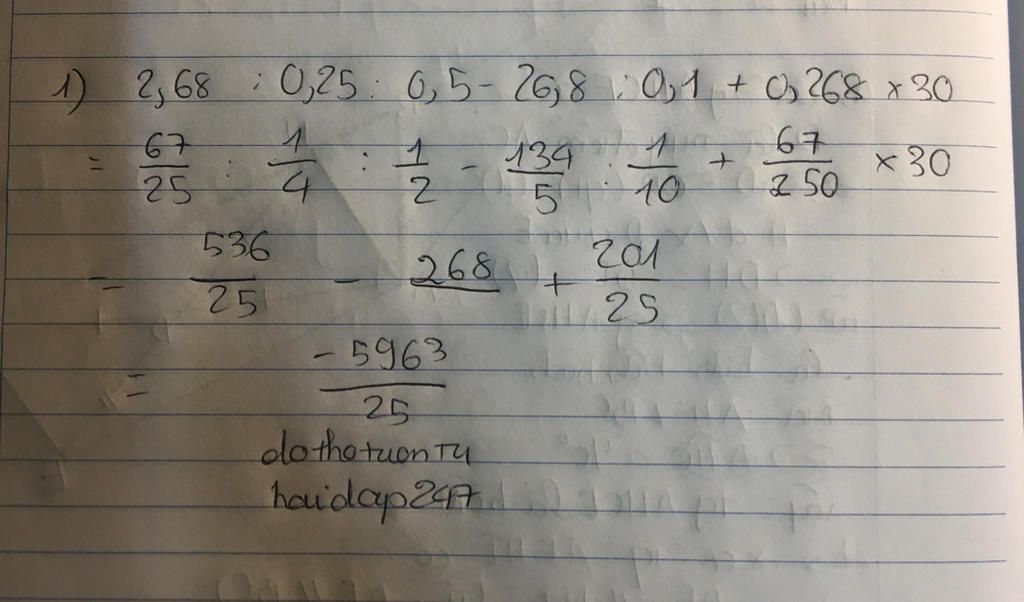 1) 2,68 : 0,25 : 0,5 - 26,8 : 0,1 + 0,268 × 30
= 67/25 : 1/4 : 1/2 - 134/5 : 1/10 + 67/250 × 30
= 536/25 - 268 + 201/25
= -5963/25
dothotuontu
hoidap247